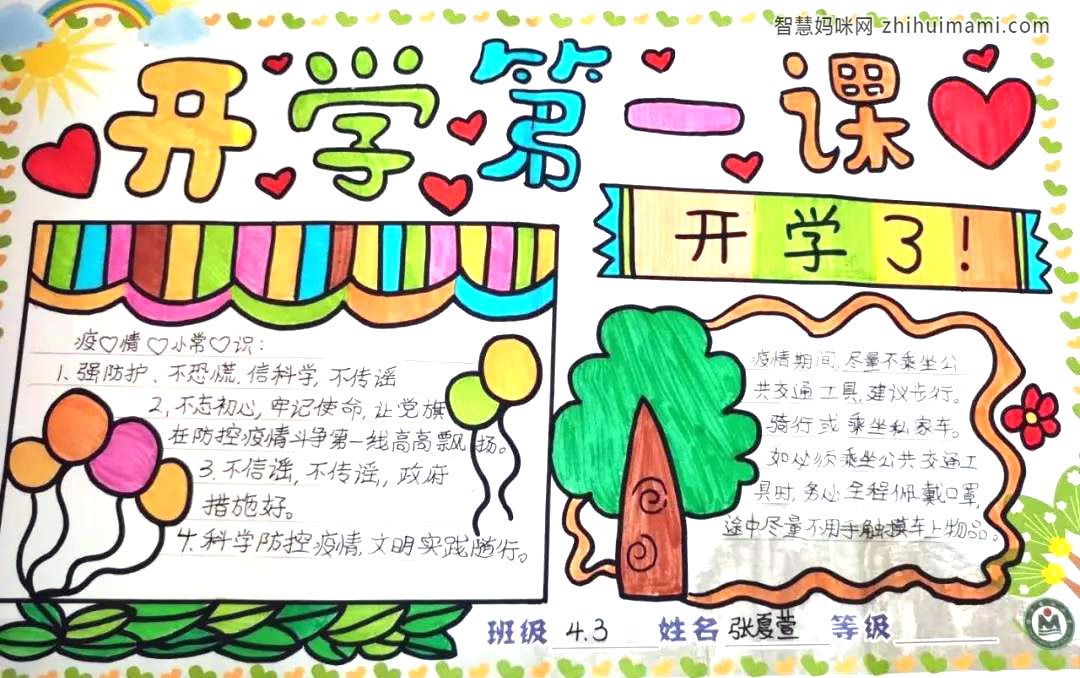 智慧妈咪网 zhihuimami.com
开学第一课
开学3!
疫情小常识:
1、强防护、不恐慌,信科学,不传谣
2,不忘初心,牢记使命,让党旗
在防控疫情斗争第一线高高飘扬。
3.不信谣,不传谣,政府
措施好。
4.科学防控疫情,文明实践随行。
疫情期间,尽量不乘坐公
共交通工具,建议步行。
骑行或乘坐私家车。
如必须乘坐公共交通工
具时,务必全程佩戴口罩,
途中尽量不用手触摸车上物品。
班级 4.3 姓名 张夏萱 等级